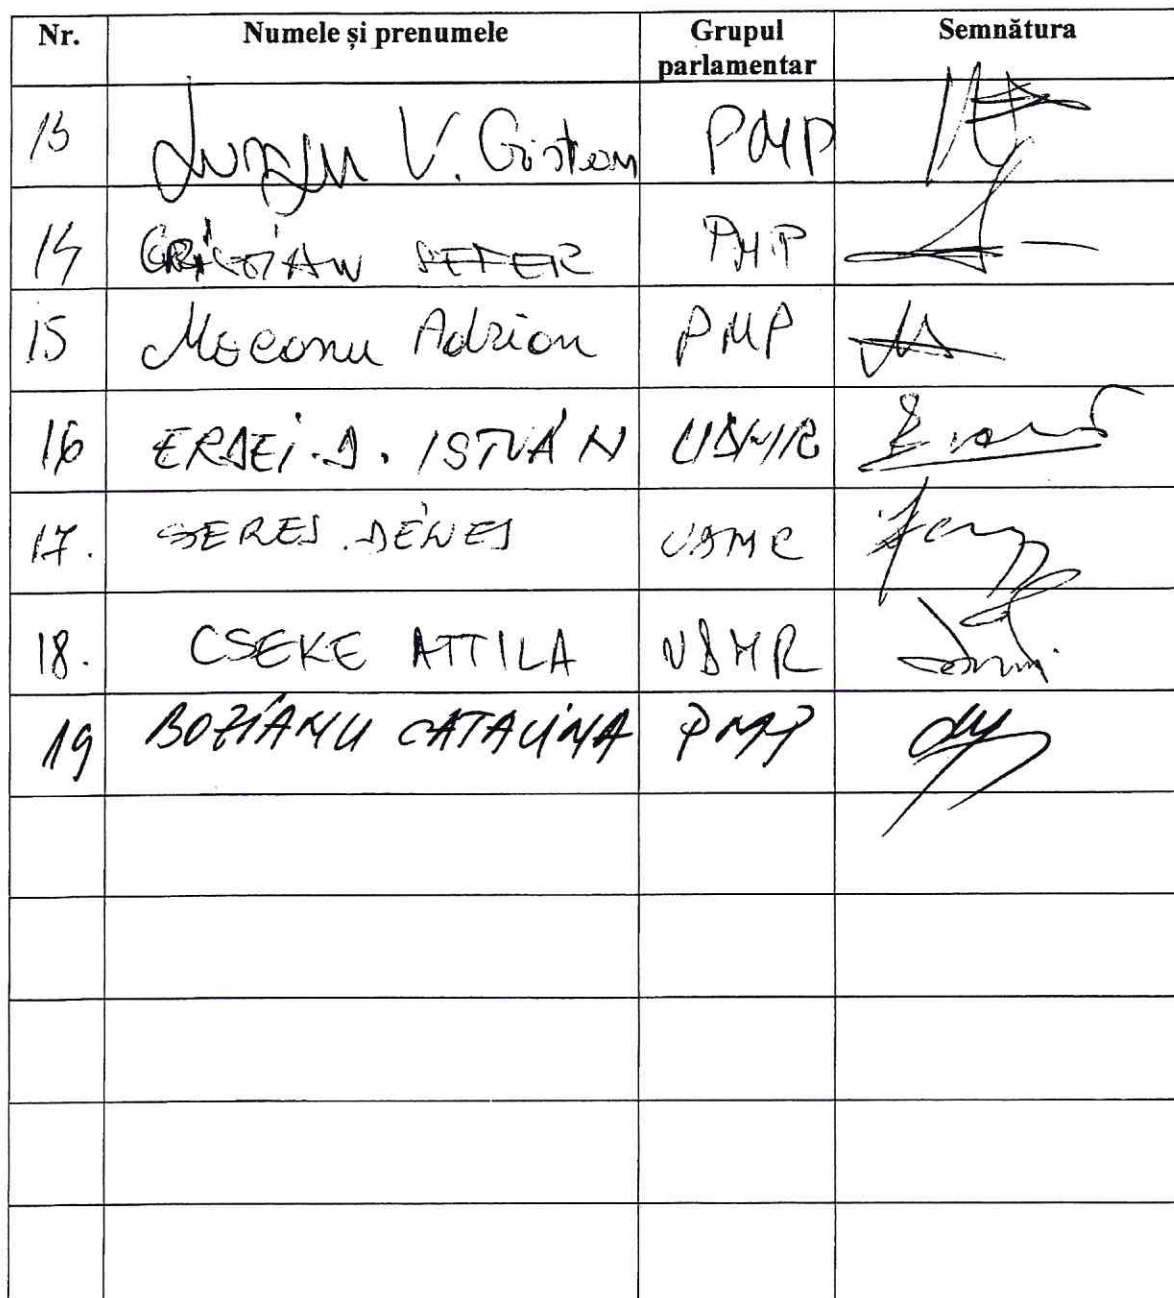 Nr. Numele și prenumele Grupul parlamentar Semnătura
13 Lungu V. Cristian PMP
14 CRISTIAN SEFER PMP
15 Mocanu Adrian PMP
16 ERDEI. D. ISTVÁN UDMR
17. SERES. DÉNES UDMR
18. CSEKE ATTILA UDMR
19 BOZIANU CATALINA PMP